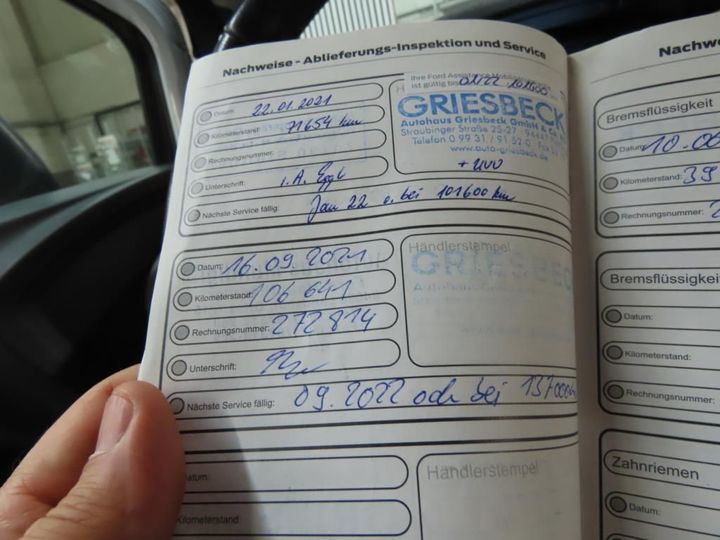 Nachweise - Ablieferungs-Inspektion und Service
Datum: 22.01.2021
Kilometerstand: 71654 km
Rechnungsnummer:
Unterschrift: i.A.
Nächste Service fällig: Jan 22 o. bei 101600 km
Ihre Ford Assistance
ist gültig bis 01/22 101600
GRIESBECK
Autohaus Griesbeck GmbH & Co.
Straubinger Straße 25-27 · 9444
Telefon 0 99 31 / 91 52 0
www.auto-griesbeck.de
+ UVV
Datum: 16.09.2021
Kilometerstand: 106 641
Rechnungsnummer: 272814
Unterschrift:
Nächste Service fällig: 09.2022 od. bei 137000 km
Händlerstempel
GRIESBECK
Datum:
Kilometerstand
Händlerstempel
Nachwe
Bremsflüssigkeit
Datum: 10.00
Kilometerstand: 39
Rechnungsnummer: 2
Bremsflüssigkei
Datum:
Kilometerstand:
Rechnungsnummer:
Zahnriemen
Datum: